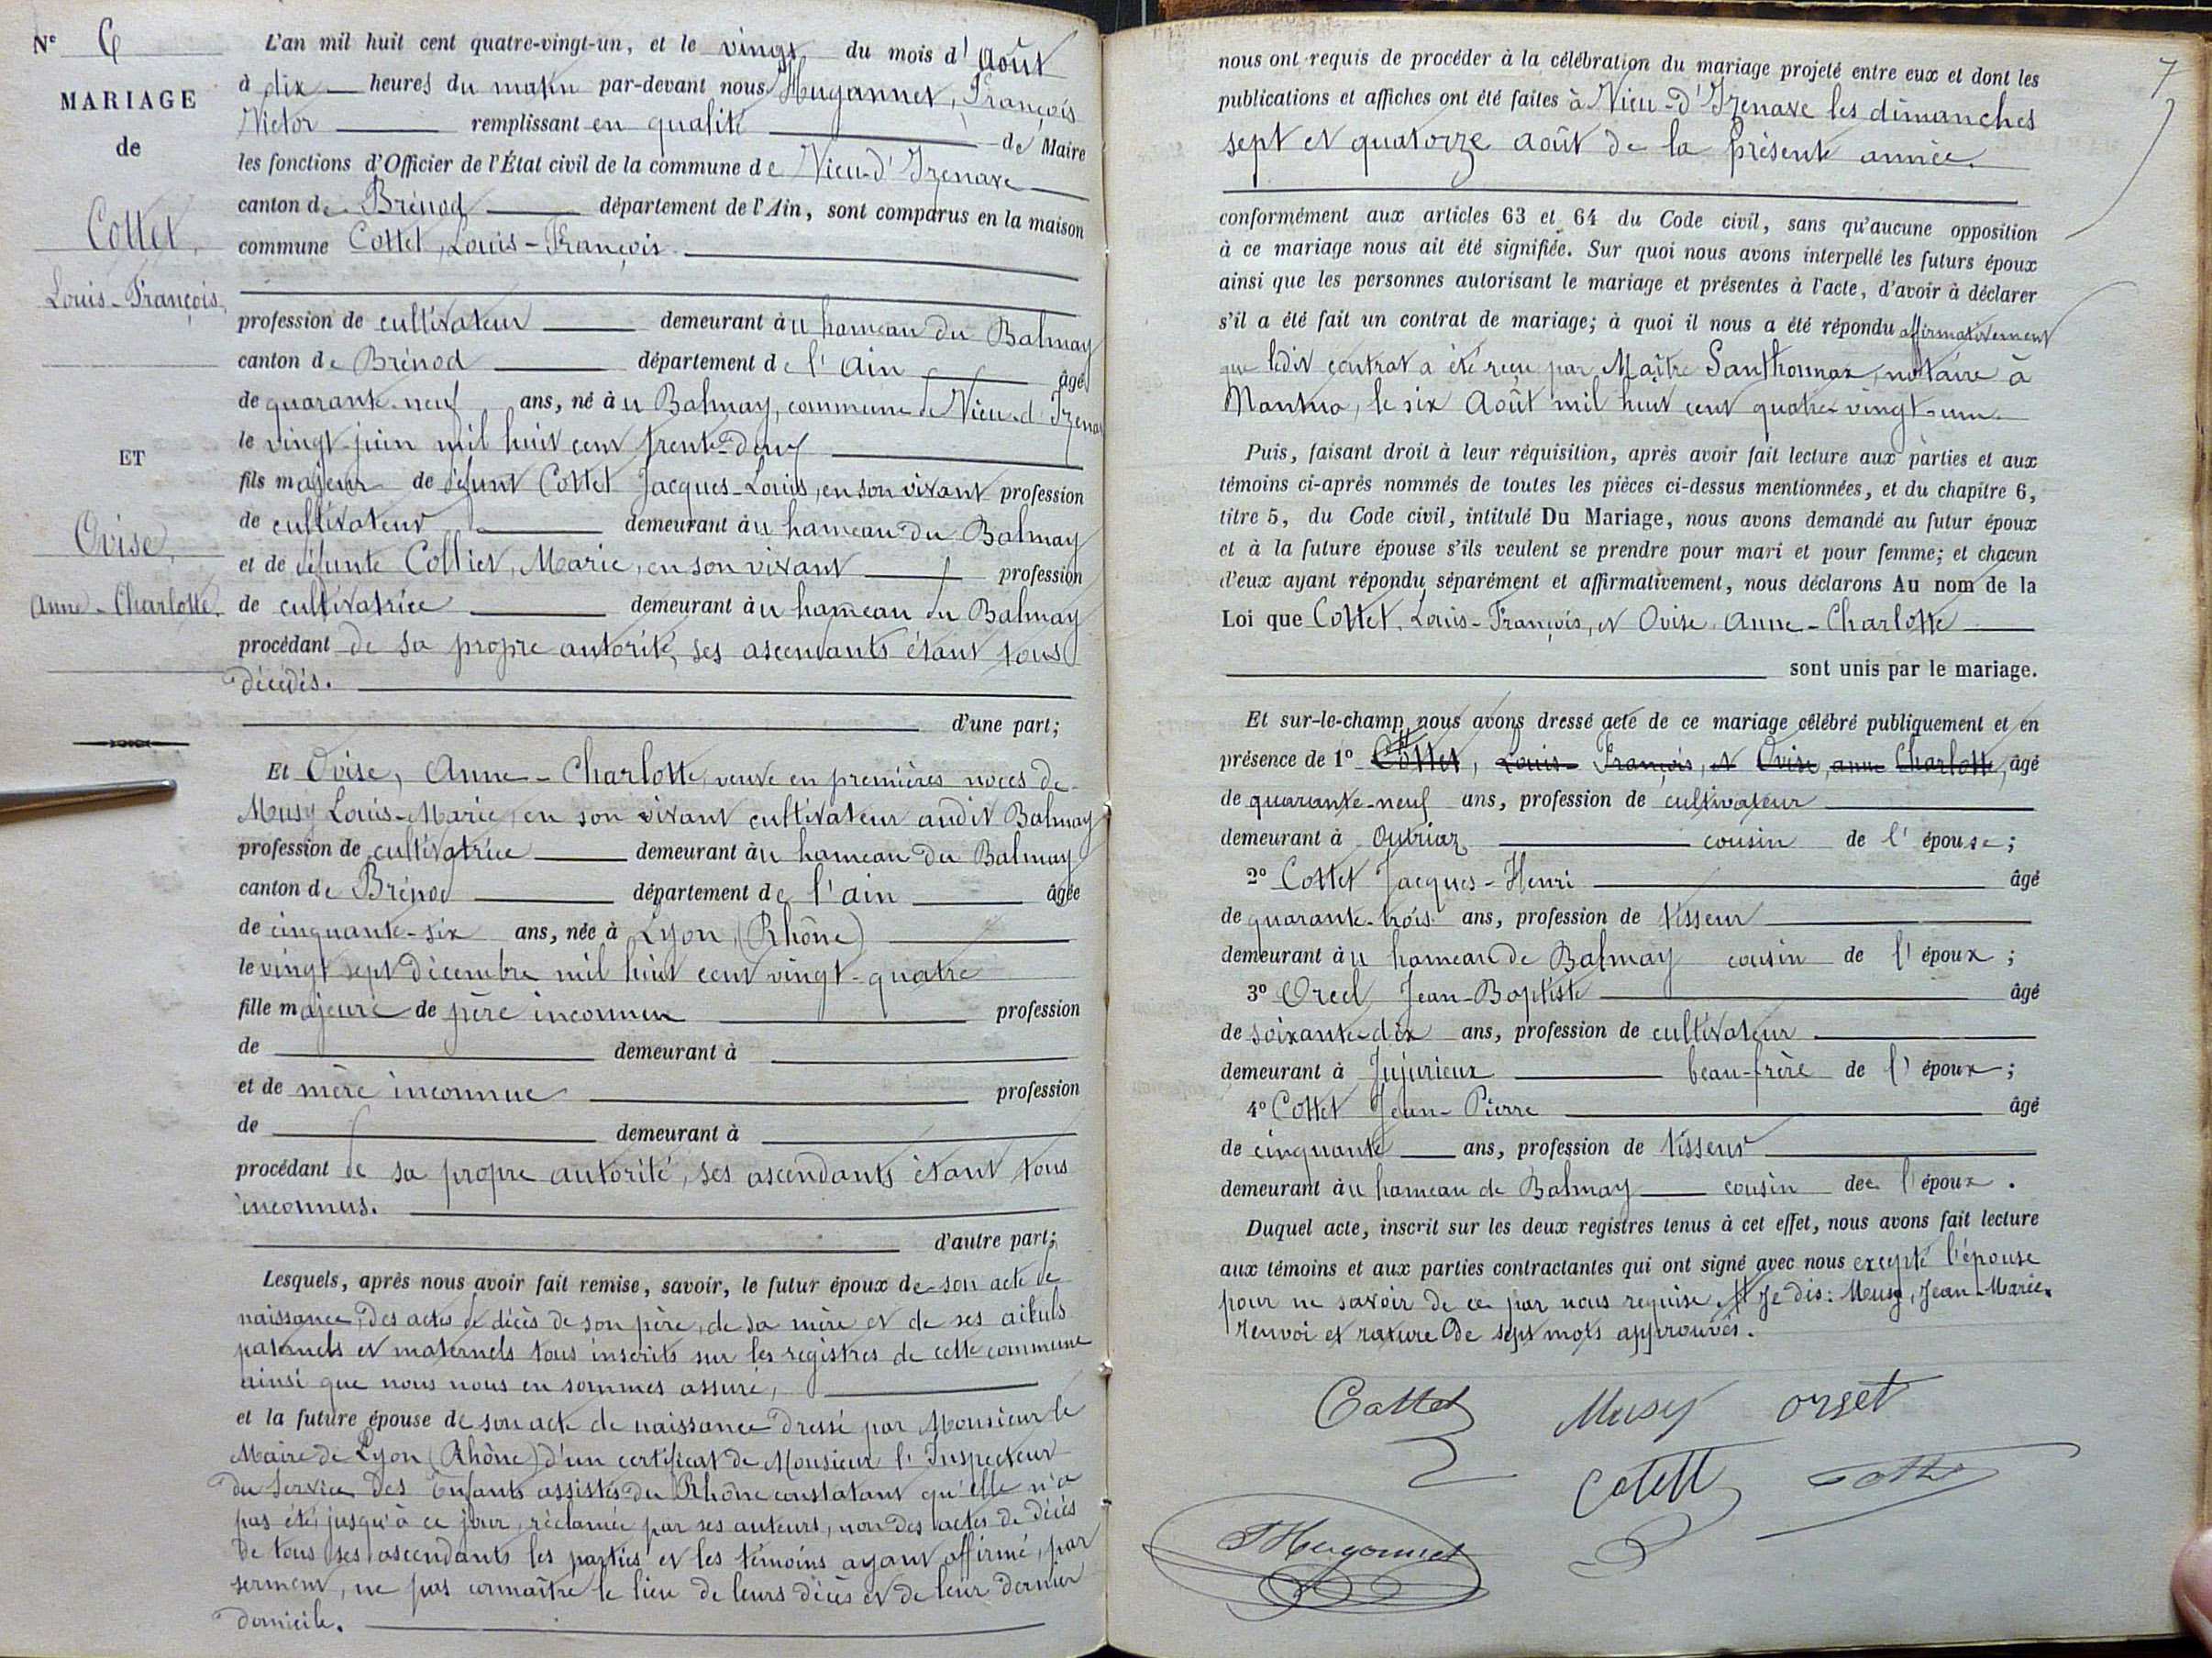 N° 6
MARIAGE
de
Cottet,
Louis-François,
ET
Ovise,
Anne-Charlotte.
L'an mil huit cent quatre-vingt-un, et le vingt du mois d'Août
à dix heures du matin par-devant nous Hugonnet, François
Victor remplissant en qualité de Maire
les fonctions d'Officier de l'État civil de la commune de Vieu-d'Izenave
canton de Brénod département de l'Ain, sont comparus en la maison
commune Cottet, Louis-François
profession de cultivateur demeurant au hameau du Balmay
canton de Brénod département de l'Ain âgé
de quarante-neuf ans, né au Balmay, commune de Vieu-d'Izenave
le vingt juin mil huit cent trente-deux
fils majeur de défunt Cottet Jacques-Louis, en son vivant profession
de cultivateur demeurant au hameau du Balmay
et de défunte Colliet, Marie, en son vivant profession
de cultivatrice demeurant au hameau du Balmay
procédant de sa propre autorité, ses ascendants étant tous
décédés.
d'une part;
Et Ovise, Anne-Charlotte, veuve en premières noces de
Musy Louis-Marie, en son vivant cultivateur audit Balmay
profession de cultivatrice demeurant au hameau du Balmay
canton de Brénod département de l'ain âgée
de cinquante-six ans, née à Lyon, (Rhône)
le vingt sept décembre mil huit cent vingt-quatre
fille majeure de père inconnu profession
de demeurant à
et de mère inconnue profession
de demeurant à
procédant de sa propre autorité, ses ascendants étant tous
inconnus.
d'autre part;
Lesquels, après nous avoir fait remise, savoir, le futur époux de son acte de
naissance, des actes de décès de son père, de sa mère et de ses aïeuls
paternels et maternels tous inscrits sur les registres de cette commune
ainsi que nous nous en sommes assuré,
et la future épouse de son acte de naissance dressé par Monsieur le
Maire de Lyon (Rhône) d'un certificat de Monsieur l'Inspecteur
du Service des Enfants assistés du Rhône constatant qu'elle n'a
pas été, jusqu'à ce jour, réclamée par ses auteurs, non des actes de décès
de tous ses ascendants les parties et les témoins ayant affirmé, par
serment, ne pas connaître le lieu de leurs décès et de leur dernier
domicile.
7
nous ont requis de procéder à la célébration du mariage projeté entre eux et dont les
publications et affiches ont été faites à Vieu-d'Izenave les dimanches
sept et quatorze août de la présente année.
conformément aux articles 63 et 64 du Code civil, sans qu'aucune opposition
à ce mariage nous ait été signifiée. Sur quoi nous avons interpellé les futurs époux
ainsi que les personnes autorisant le mariage et présentes à l'acte, d'avoir à déclarer
s'il a été fait un contrat de mariage; à quoi il nous a été répondu affirmativement
que ledit contrat a été reçu par Maître Santhonnax, notaire à
Nantua, le six Août mil huit cent quatre-vingt-un.
Puis, faisant droit à leur réquisition, après avoir fait lecture aux parties et aux
témoins ci-après nommés de toutes les pièces ci-dessus mentionnées, et du chapitre 6,
titre 5, du Code civil, intitulé Du Mariage, nous avons demandé au futur époux
et à la future épouse s'ils veulent se prendre pour mari et pour femme; et chacun
d'eux ayant répondu séparément et affirmativement, nous déclarons Au nom de la
Loi que Cottet, Louis-François, et Ovise Anne-Charlotte
sont unis par le mariage.
Et sur-le-champ nous avons dressé acte de ce mariage célébré publiquement et en
présence de 1° Cottet, Louis-François, et Ovise, anne Charlotte, âgé
de quarante-neuf ans, profession de cultivateur
demeurant à Outriaz cousin de l'épouse;
2° Cottet Jacques-Henri âgé
de quarante-trois ans, profession de tisseur
demeurant au hameau de Balmay cousin de l'époux;
3° Orcel Jean-Baptiste âgé
de soixante-dix ans, profession de cultivateur
demeurant à Jujurieux beau-frère de l'époux;
4° Cottet Jean-Pierre âgé
de cinquante ans, profession de tisseur
demeurant au hameau de Balmay cousin de l'époux.
Duquel acte, inscrit sur les deux registres tenus à cet effet, nous avons fait lecture
aux témoins et aux parties contractantes qui ont signé avec nous excepté l'épouse
pour ne savoir de ce par nous requise. # Je dis: Musy, Jean-Marie.
renvoi et rature de sept mots approuvés.
Cottet Musy orset
Cotett Cottet
Hugonnet